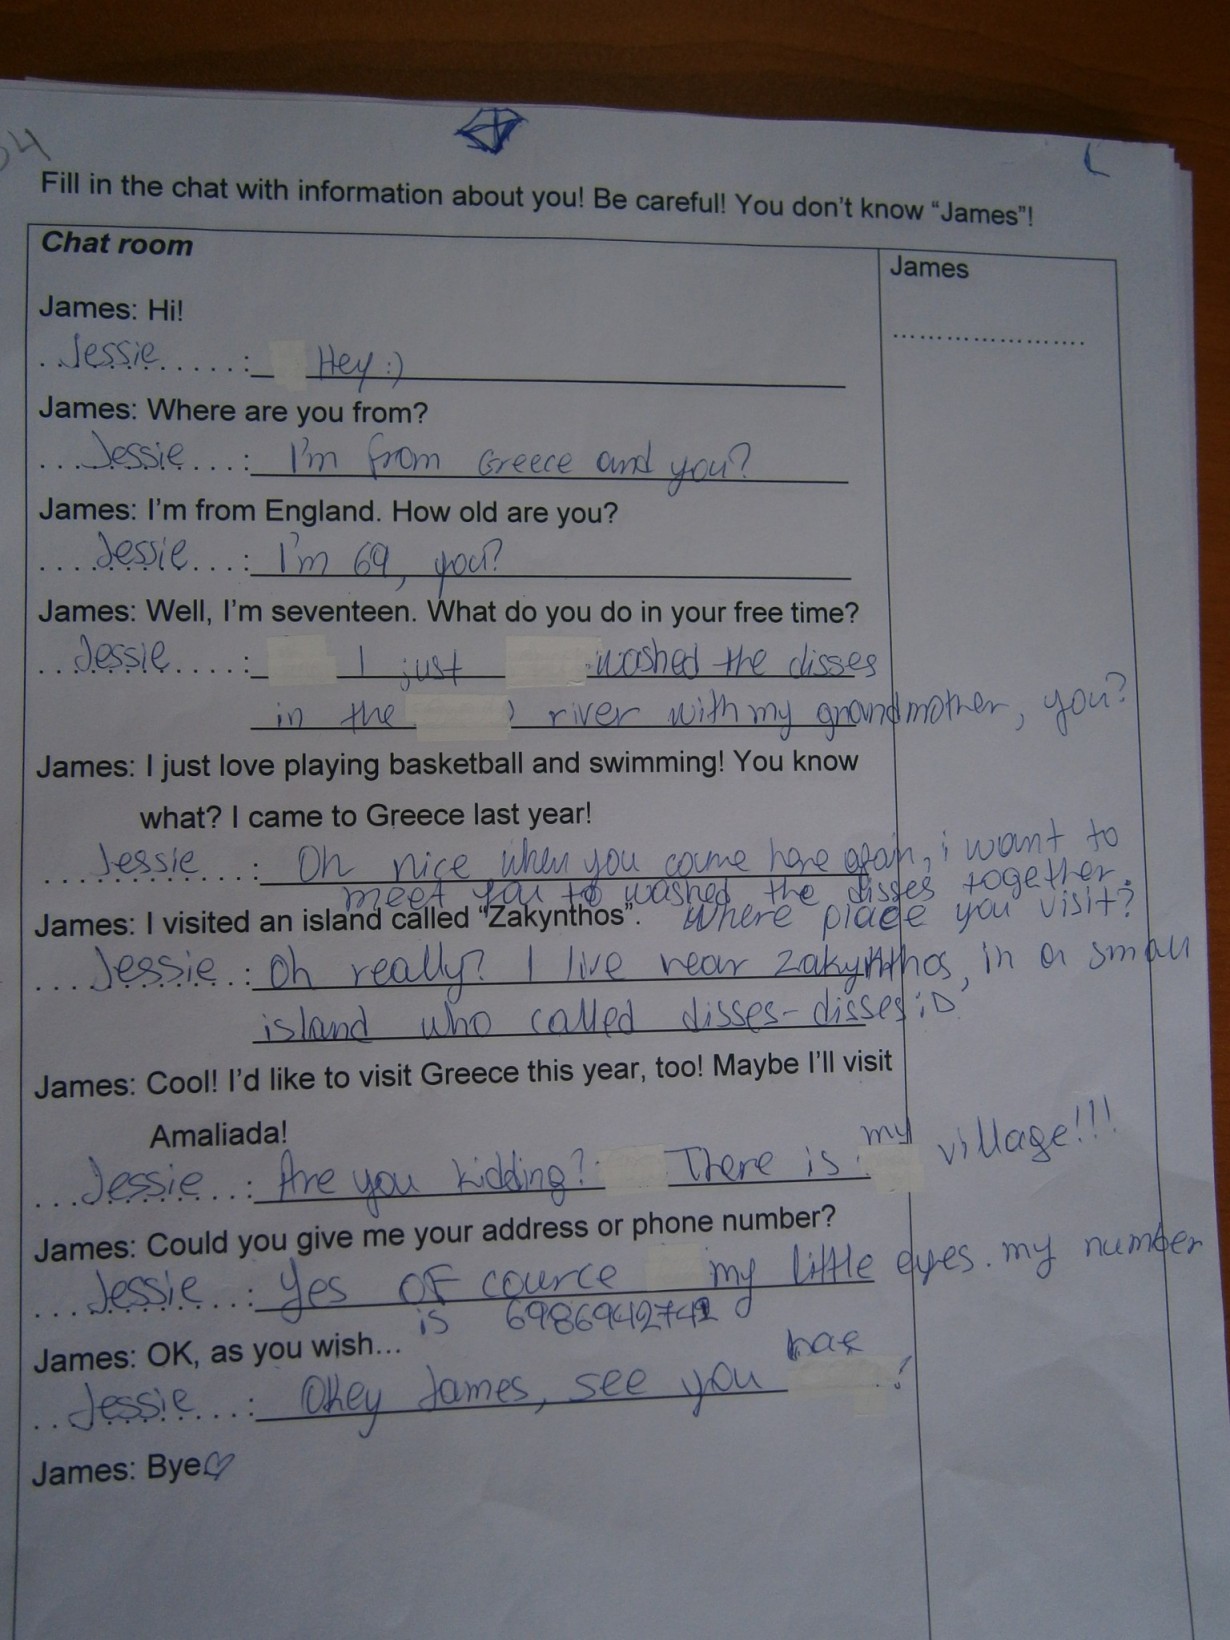 34
Fill in the chat with information about you! Be careful! You don't know “James”!
Chat room
James
....................
James: Hi!
..Jessie......: Hey :)
James: Where are you from?
...Jessie...: I'm from Greece and you?
James: I'm from England. How old are you?
....Jessie...: I'm 69, you?
James: Well, I'm seventeen. What do you do in your free time?
..Jessie.....: I just washed the disses
in the river with my grandmother, you?
James: I just love playing basketball and swimming! You know
what? I came to Greece last year!
....Jessie....: Oh nice when you came here again, i want to
meet you to washed the disses together.
Where place you visit?
James: I visited an island called “Zakynthos”.
...Jessie..: Oh really? I live near Zakynthos, in a small
island who called disses-disses ;D
James: Cool! I'd like to visit Greece this year, too! Maybe I'll visit
Amaliada!
...Jessie...: Are you kidding? There is my village!!!
James: Could you give me your address or phone number?
...Jessie...: Yes OF cource my little eyes. my number
is
James: OK, as you wish...
..Jessie...: Okey James, see you !
James: Bye♡